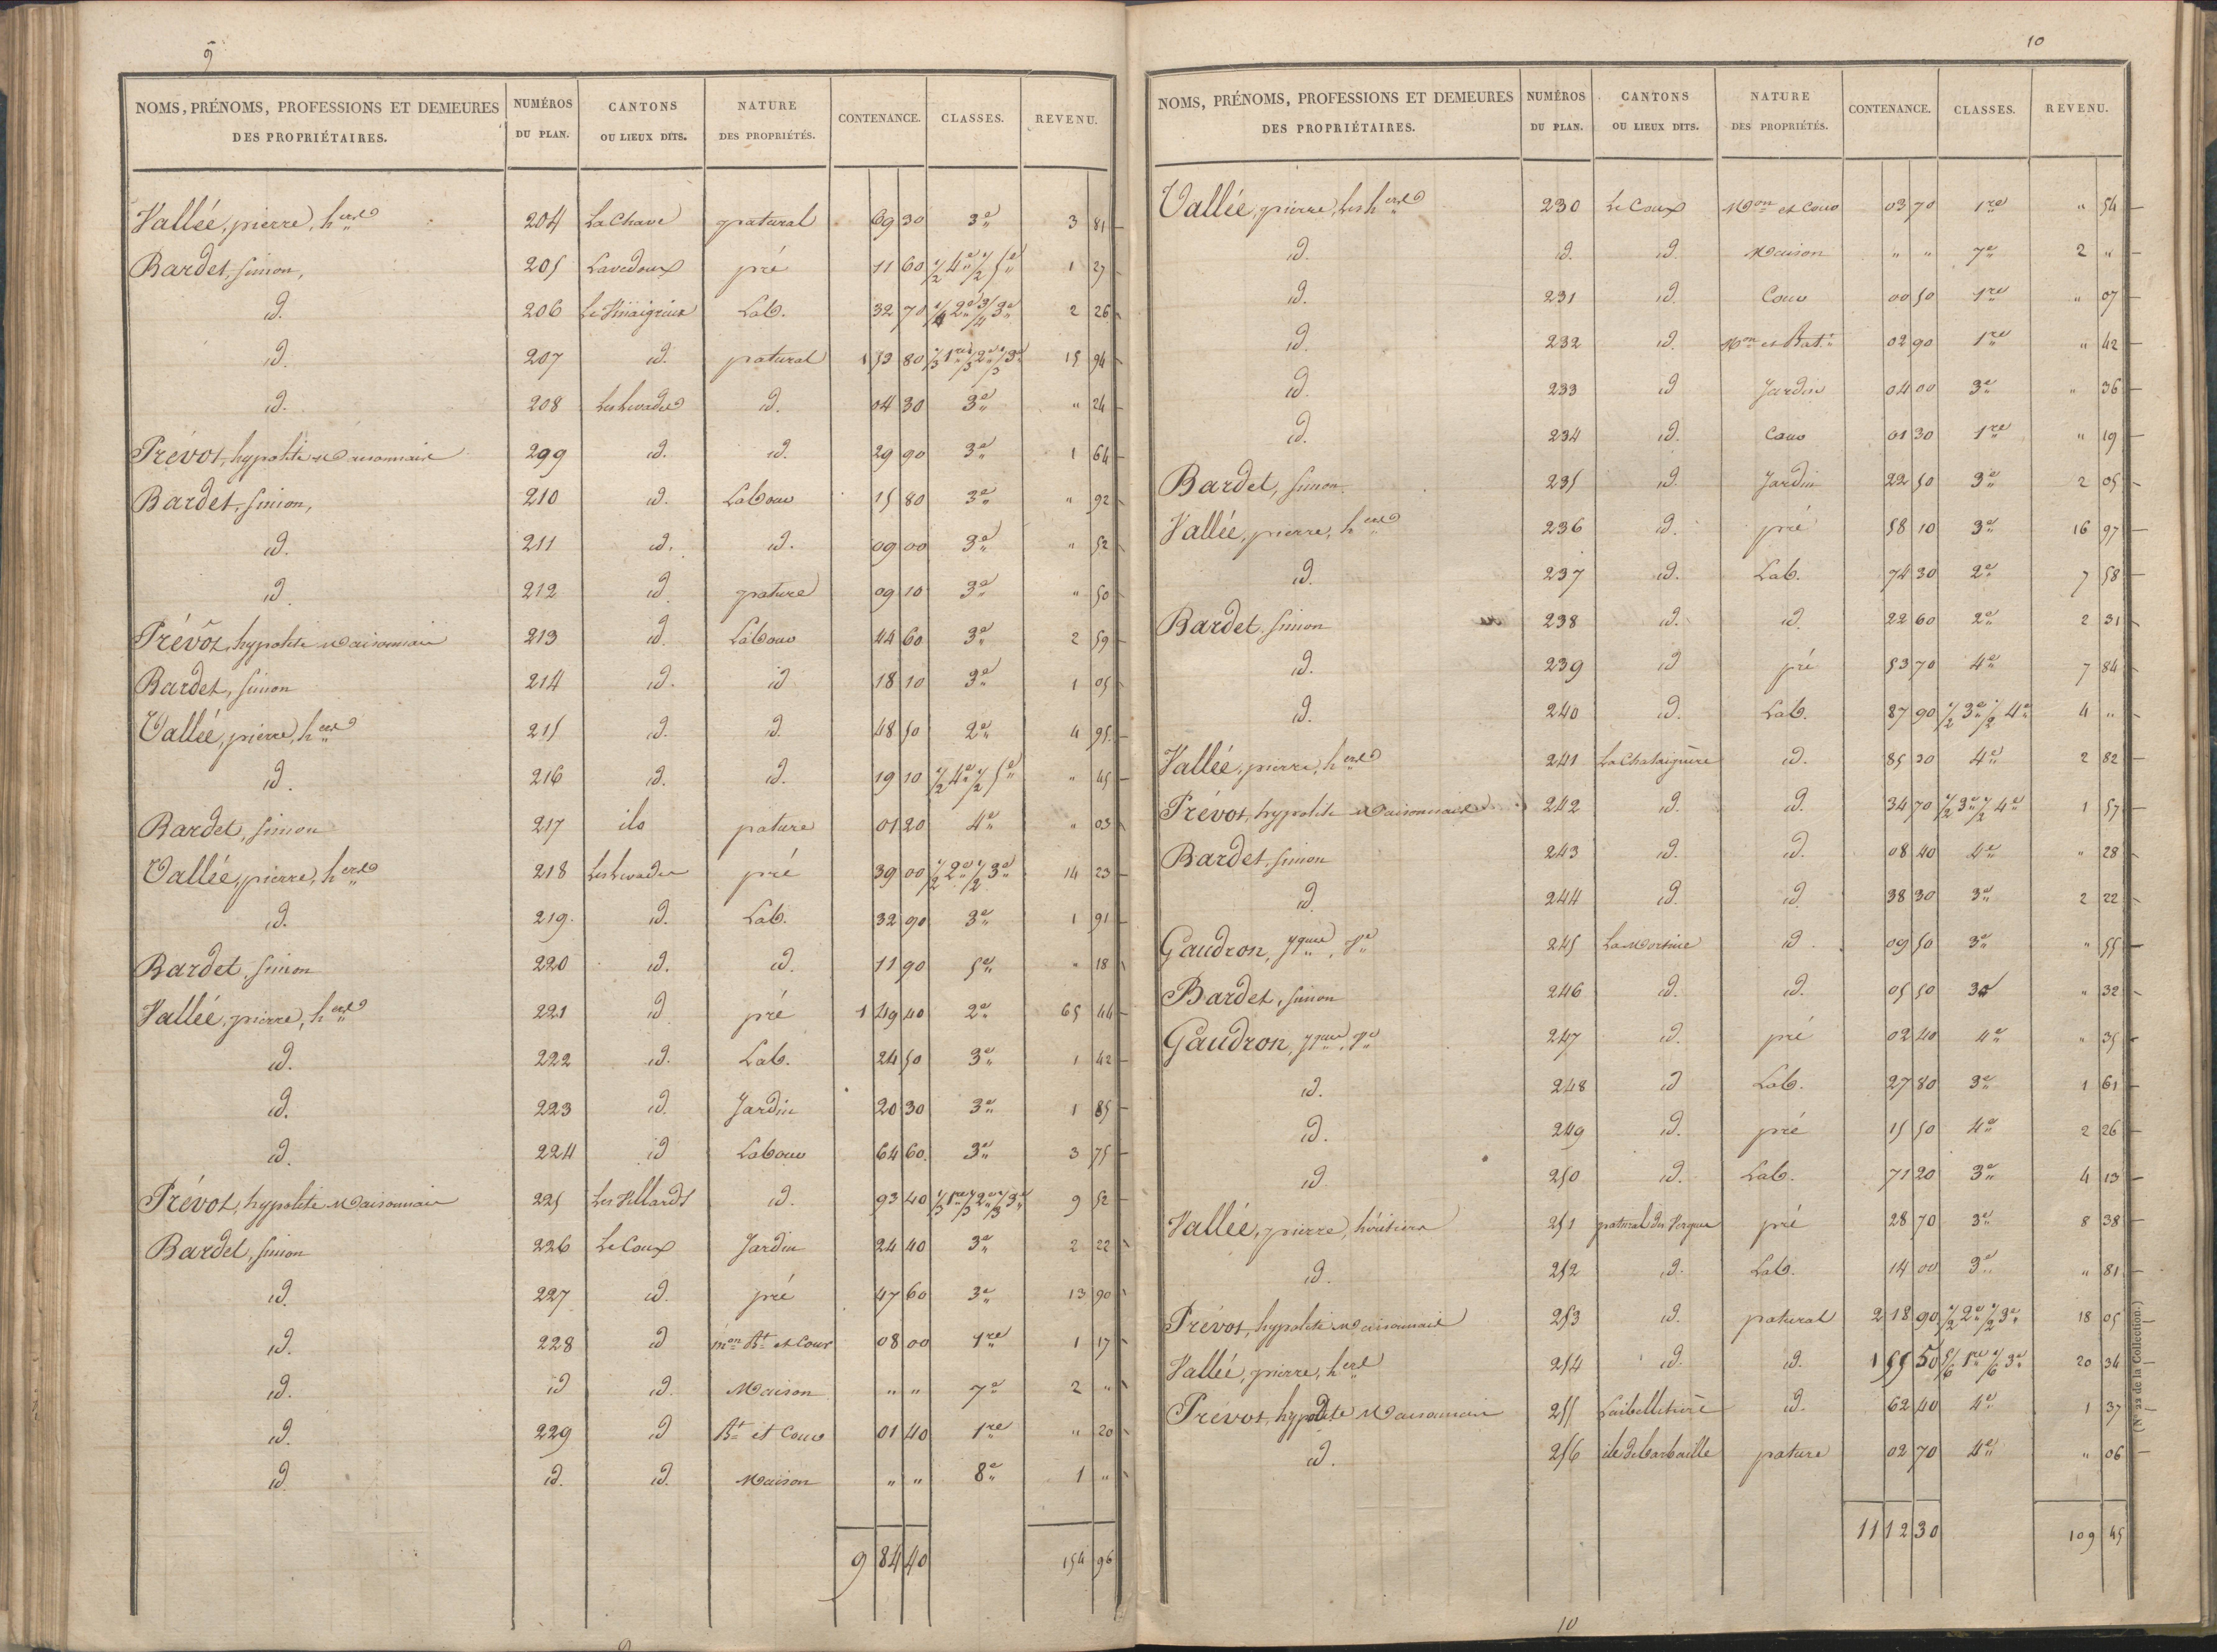 9
NOMS, PRÉNOMS, PROFESSIONS ET DEMEURES DES PROPRIÉTAIRES. NUMÉROS DU PLAN. CANTONS OU LIEUX DITS. NATURE DES PROPRIÉTÉS. CONTENANCE. CLASSES. REVENU.
Vallée, pierre, h.ers 204 La Chave patural 69 30 3e 3 81
Bardet, simon, 205 Lavedoux pré 11 60 1/2 4e 1/2 5e 1 27
id. 206 Lab. 32 70 1/4 2e 3/4 3e 2 26
id. 207 id. patural 1 53 80 1/3 1re 1/3 2e 1/3 3e 15 94
id. 208 Les Levades id. 04 30 3e " 24
Prévot, hypolite Maisonnais 299 id. id. 29 90 3e 1 64
Bardet, simon, 210 id. Labour 15 80 3e " 92
id. 211 id. id. 09 00 3e " 52
id. 212 id. pature 09 10 3e " 50
Prévôt, hypolite Maisonnais 213 id. Labour 44 60 3e 2 59
Bardet, simon 214 id. id 18 10 3e 1 05
Vallée, pierre, h.ers 215 id. id. 48 50 2e 4 95
id. 216 id. id. 19 10 1/2 4e 1/2 5e " 45
Bardet, simon 217 ile pature 01 20 4e " 03
Vallée, pierre, h.ers 218 Les Levades pré 39 00 1/2 2e 1/2 3e 14 23
id. 219 id. Lab. 32 90 3e 1 91
Bardet, simon 220 id. id. 11 90 5e " 18
Vallée, pierre, h.ers 221 id pré 1 49 40 2e 65 44
id. 222 id. Lab. 24 50 3e 1 42
id. 223 id. Jardin 20 30 3e 1 85
id. 224 id Labour 64 60 3e 3 75
Prévot, hypolite Maisonnais 225 Les Villards id. 93 40 1/3 1re 1/3 2e 1/3 3e 9 52
Bardet, simon 226 Le Coux Jardin 24 40 3e 2 22
id. 227 id. pré 47 60 3e 13 90
id. 228 id mon Bt et Cour 08 00 1re 1 17
id. id id. Maison " " 7e 2 "
id. 229 id Bt et Cour 01 40 1re " 20
id. id. id. Maison " " 8e 1 "
9 84 40 154 96
10
NOMS, PRÉNOMS, PROFESSIONS ET DEMEURES DES PROPRIÉTAIRES. NUMÉROS DU PLAN. CANTONS OU LIEUX DITS. NATURE DES PROPRIÉTÉS. CONTENANCE. CLASSES. REVENU.
Vallée, pierre, Les h.ers 230 Le Coux Mon et Cour 03 70 1re " 54
id. id. id. Maison " " 7e 2 "
id. 231 id. Cour 00 50 1re " 07
id. 232 id. Mon et Bat. 02 90 1re " 42
id. 233 id Jardin 04 00 3e " 36
id. 234 id. Cour 01 30 1re " 19
Bardet, simon 235 id. Jardin 22 50 3e 2 05
Vallée, pierre, h.ers 236 id. pré 58 10 3e 16 97
id. 237 id. Lab. 74 30 2e 7 58
Bardet, simon 238 id. id. 22 60 2e 2 31
id. 239 id pré 53 70 4e 7 84
id. 240 id. Lab. 87 90 1/2 3e 1/2 4e 4 "
Vallée, pierre, h.ers 241 La Chataignière id. 85 30 4e 2 82
Prévot, hypolite Maisonnais 242 id. id. 34 70 1/2 3e 1/2 4e 1 57
Bardet, simon 243 id. id. 08 40 4e " 28
id. 244 id. id. 38 30 3e 2 22
Gaudron, 245 id. 09 50 3e " 55
Bardet, simon 246 id. id. 05 50 3e " 32
Gaudron, 247 id. pré 02 40 4e " 35
id. 248 id Lab. 27 80 3e 1 61
id. 249 id. pré 15 50 4e 2 26
id 250 id. Lab. 71 20 3e 4 13
Vallée, pierre, héritiers 251 patural du Vergne pré 28 70 3e 8 38
id. 252 id. Lab. 14 00 3e " 81
Prévot, hypolite Maisonnais 253 id. patural 2 18 90 1/2 2e 1/2 3e 18 05
Vallée, pierre, h.ers 254 id. id. 1 55 50 5/6 1re 1/6 3e 20 34
Prévot, hypolite Maisonnais 255 id. 62 40 4e 1 37
id. 256 pature 02 70 4e " 06
11 12 30 109 45
(N° 23 de la Collection.)
10